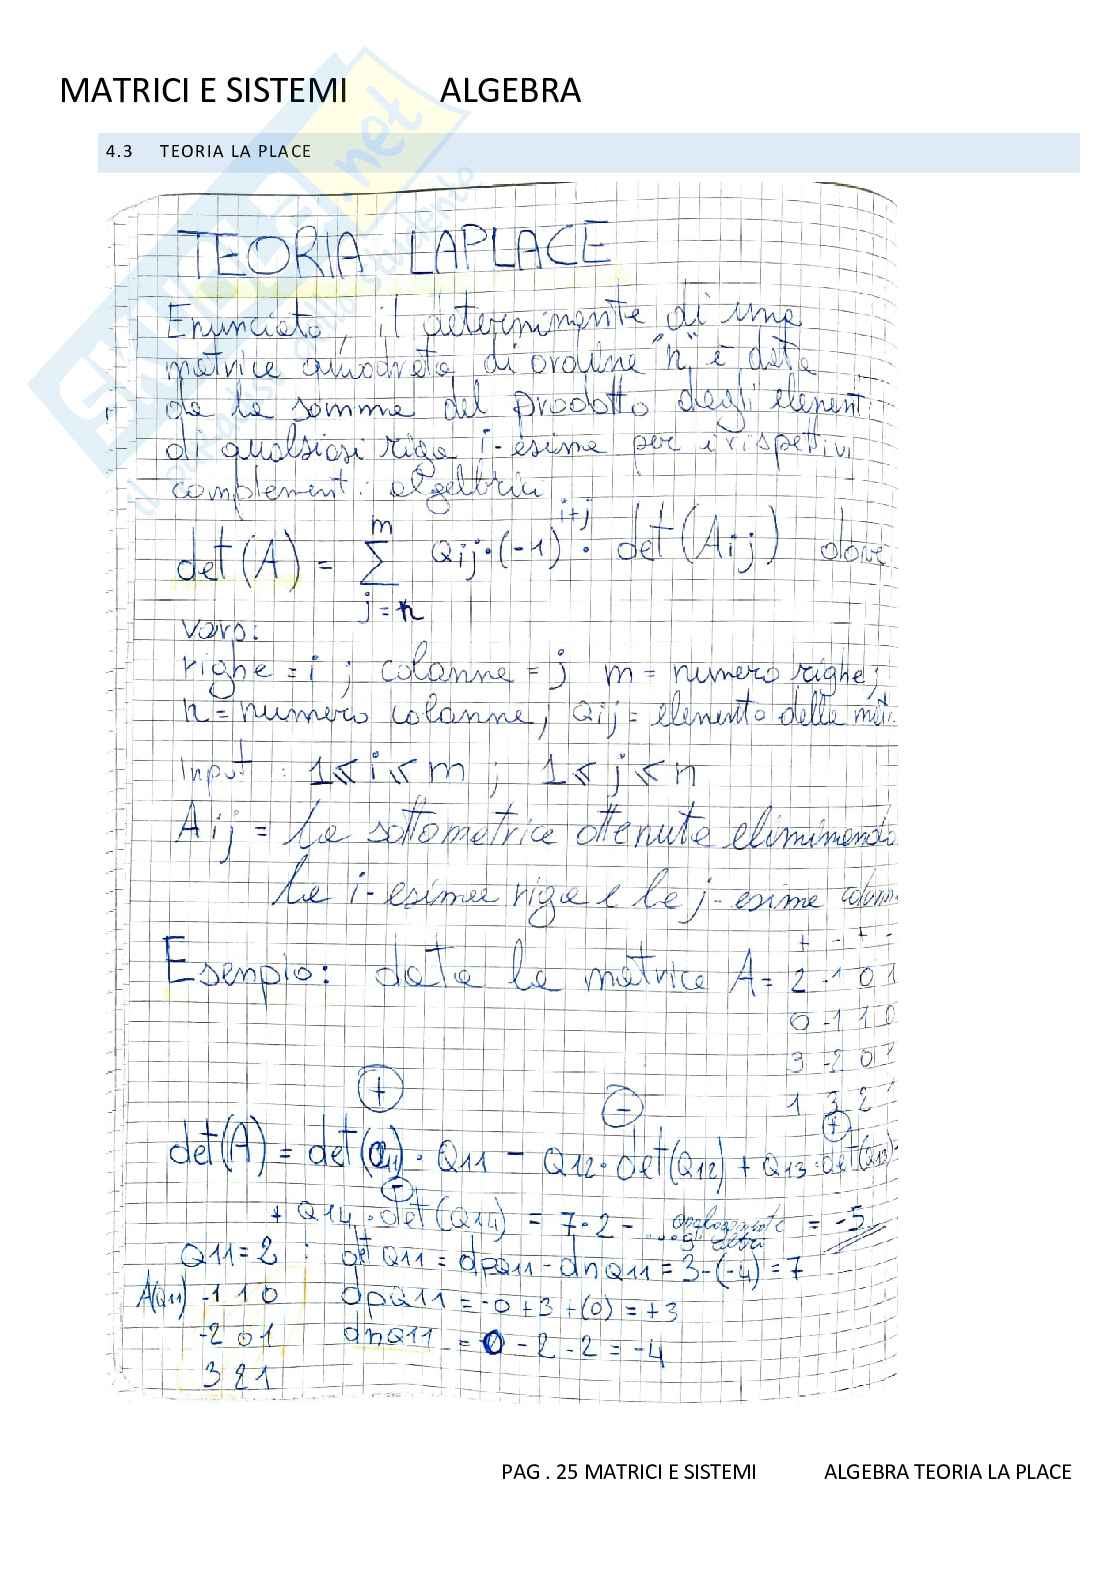 MATRICI E SISTEMI ALGEBRA
4.3 TEORIA LA PLACE
SKUOLA.net
il paradiso dello studente
TEORIA LAPLACE
Enunciato, il determinante di una
matrice quadrata di ordine "n" è data
da la somma del prodotto degli elementi
di qualsiasi riga i-esima per i rispettivi
complementi algebrici
det(A) = m ∑ j=n aij·(-1)^i+j · det(Aij) dove
vars:
righe = i ; colonne = j m = numero righe;
n = numero colonne; aij = elemento della mat.
Input : 1≤i≤m ; 1≤j≤n
Aij = La sottomatrice ottenuta eliminando
La i-esima riga e la j-esima colonn.
+ - + -
Esempio: data la matrice A= 2 -1 0 1
0 -1 1 0
3 -2 0 1
1 3 2
+ - +
det(A) = det(a11)· a11 - a12·det(a12) + a13·det(a13)
-
+ a14·det(a14) = 7·2 - ... = -5
a11=2 : det a11 = dpa11 - dna11 = 3-(-4) = 7
A(a11) -1 1 0 dpa11 = -0+3+(0) = +3
-2 0 1 dna11 = 0 - 2 - 2 = -4
3 2 1
PAG . 25 MATRICI E SISTEMI ALGEBRA TEORIA LA PLACE